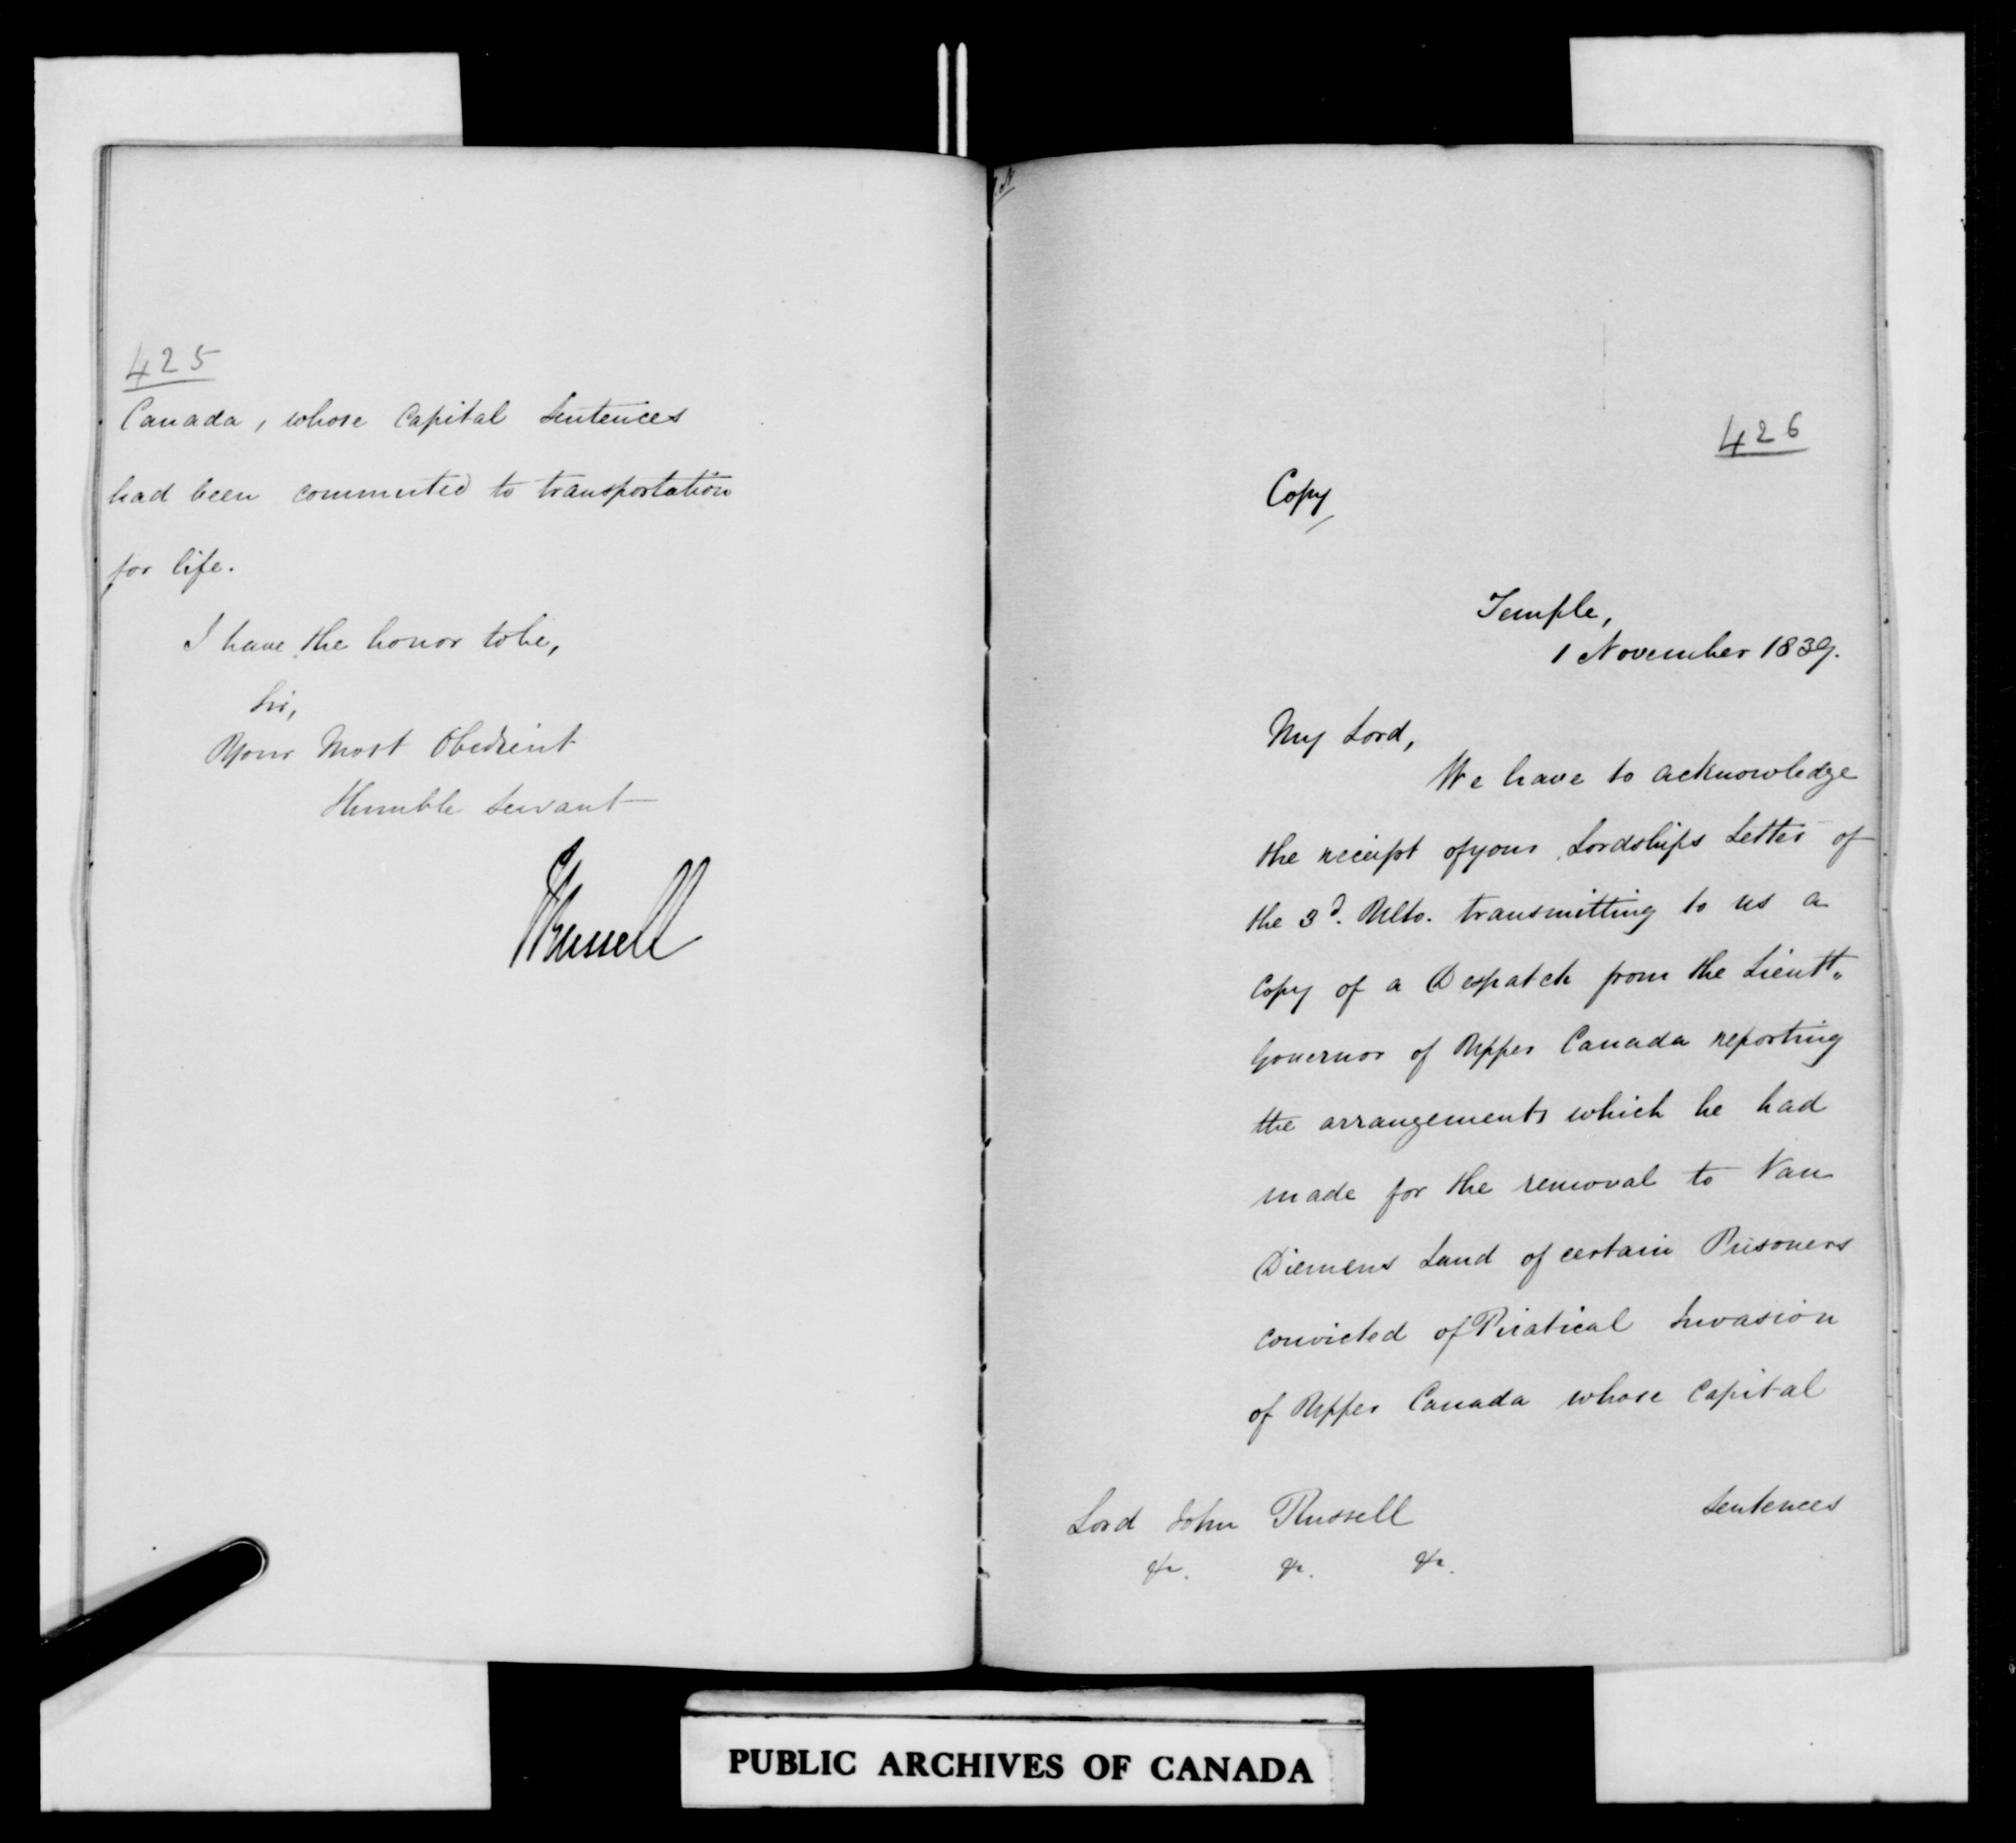 425
Canada, whose Capital Sentences
had been commuted to transportation
for life.
I have the honor to be,
Sir,
Your Most Obedient
Humble Servant
JRussell
426
Copy
Temple,
1 November 1839.
My Lord,
We have to acknowledge
the receipt of your Lordships Letter of
the 3d. Ulto. transmitting to us a
Copy of a Despatch from the Lieutt.
Governor of Upper Canada reporting
the arrangements which he had
made for the removal to Van
Diemens Land of certain Prisoners
convicted of Piratical Invasion
of Upper Canada whose Capital
Sentences
Lord John Russell
&c. &c. &c.
PUBLIC ARCHIVES OF CANADA